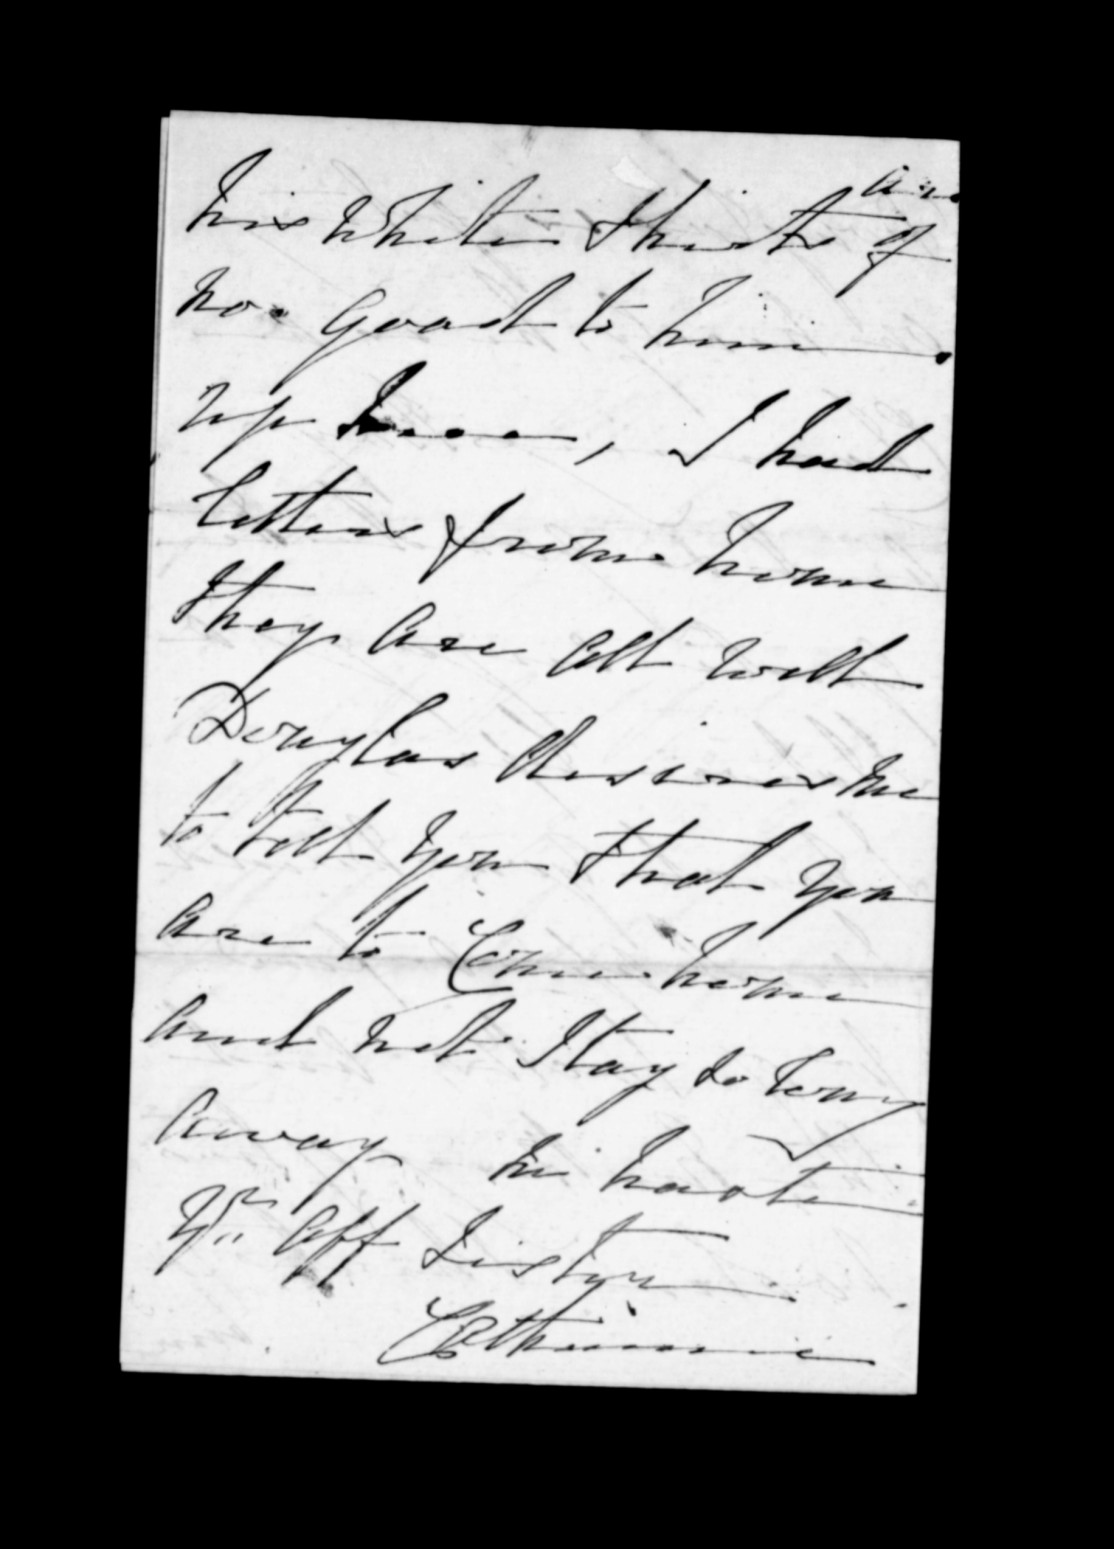 are
his white shirts of
no good to him
up here, I had
letters from home
they are all well
Douglas desires me
to tell you that you
are to Come home
and not Stay so long
away in haste
Yr. aff Sister
Catherine